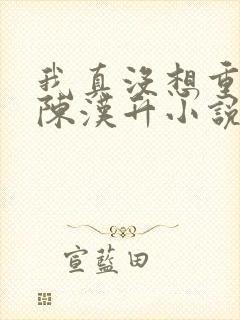 我真沒想重
陳漢升小說
宣藍田